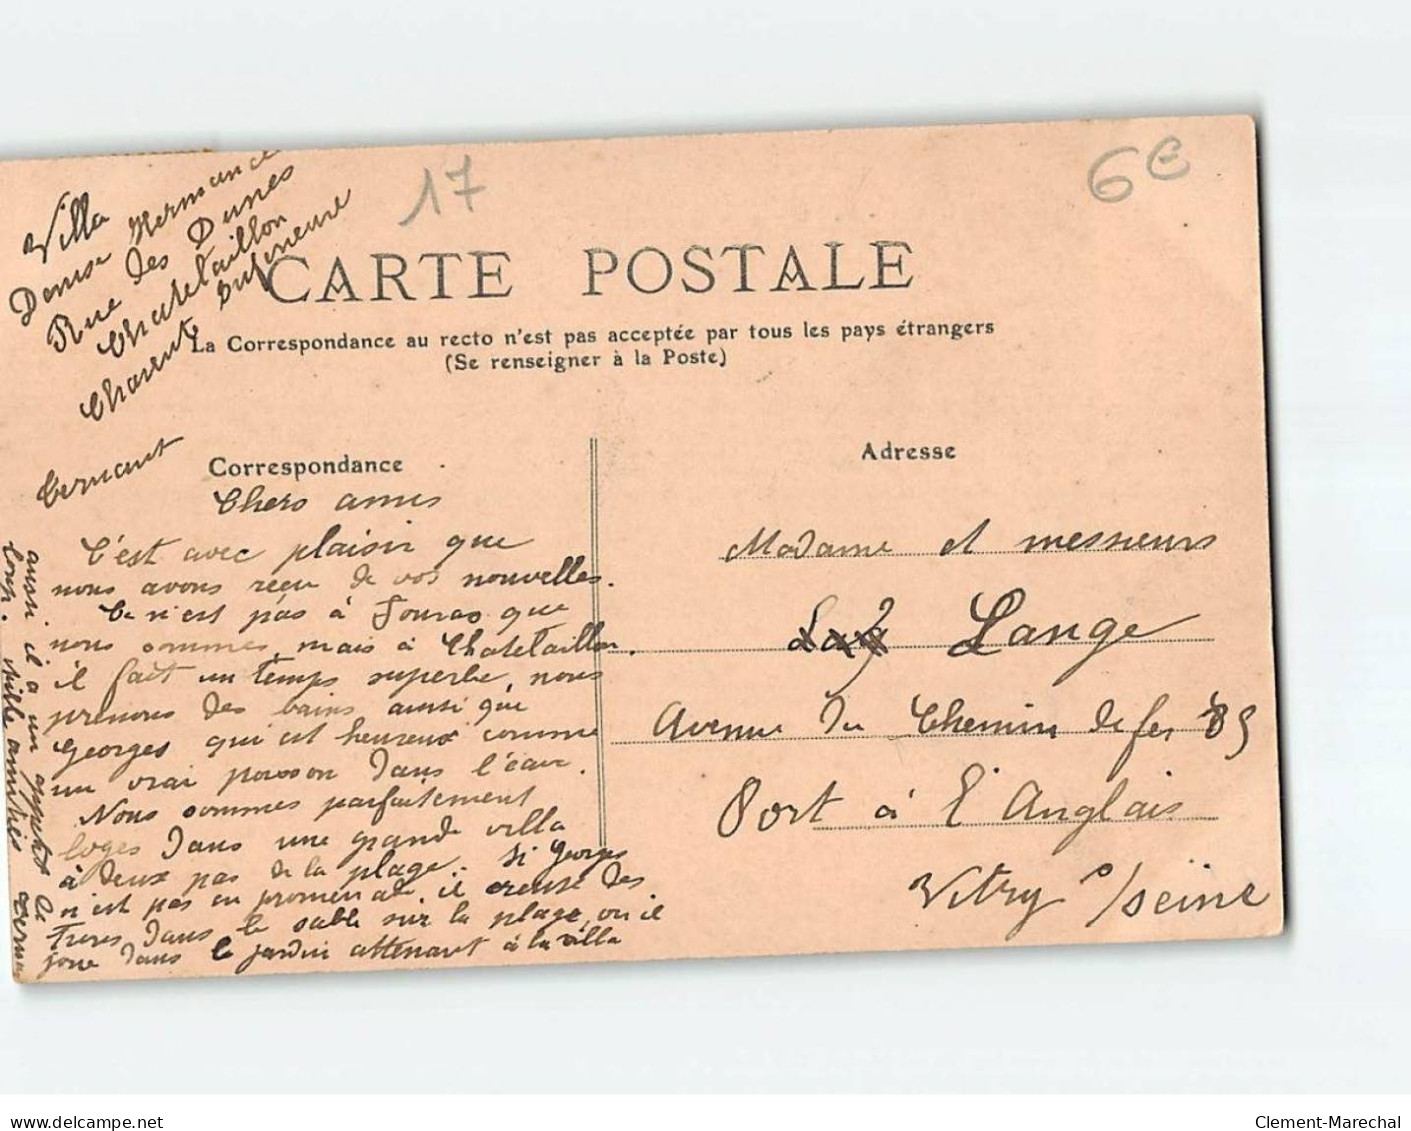 Villa
Denise Hermance
Rue des Dunes
Chatelaillon
Charente Inférieure
17
6€
CARTE POSTALE
La Correspondance au recto n'est pas acceptée par tous les pays étrangers
(Se renseigner à la Poste)
Correspondance
Chers amis
C'est avec plaisir que
nous avons reçu de vos nouvelles.
Ce n'est pas à Fouras que
nous sommes, mais à Chatelaillon.
il fait un temps superbe, nous
prenons des bains ainsi que
Georges qui est heureux comme
un vrai poisson dans l'eau.
Nous sommes parfaitement
logés dans une grande villa
à deux pas de la plage. Si Georges
n'est pas en promenade, il creuse des
trous dans le sable sur la plage, ou il
joue dans le jardin attenant à la villa
aussi il a un appétit de
loup. Mille amitiés
Adresse
Madame et messieurs
Lange
Avenue du Chemin de fer 89
Port à l'Anglais
Vitry s/seine
www.delcampe.net
Clement-Marechal